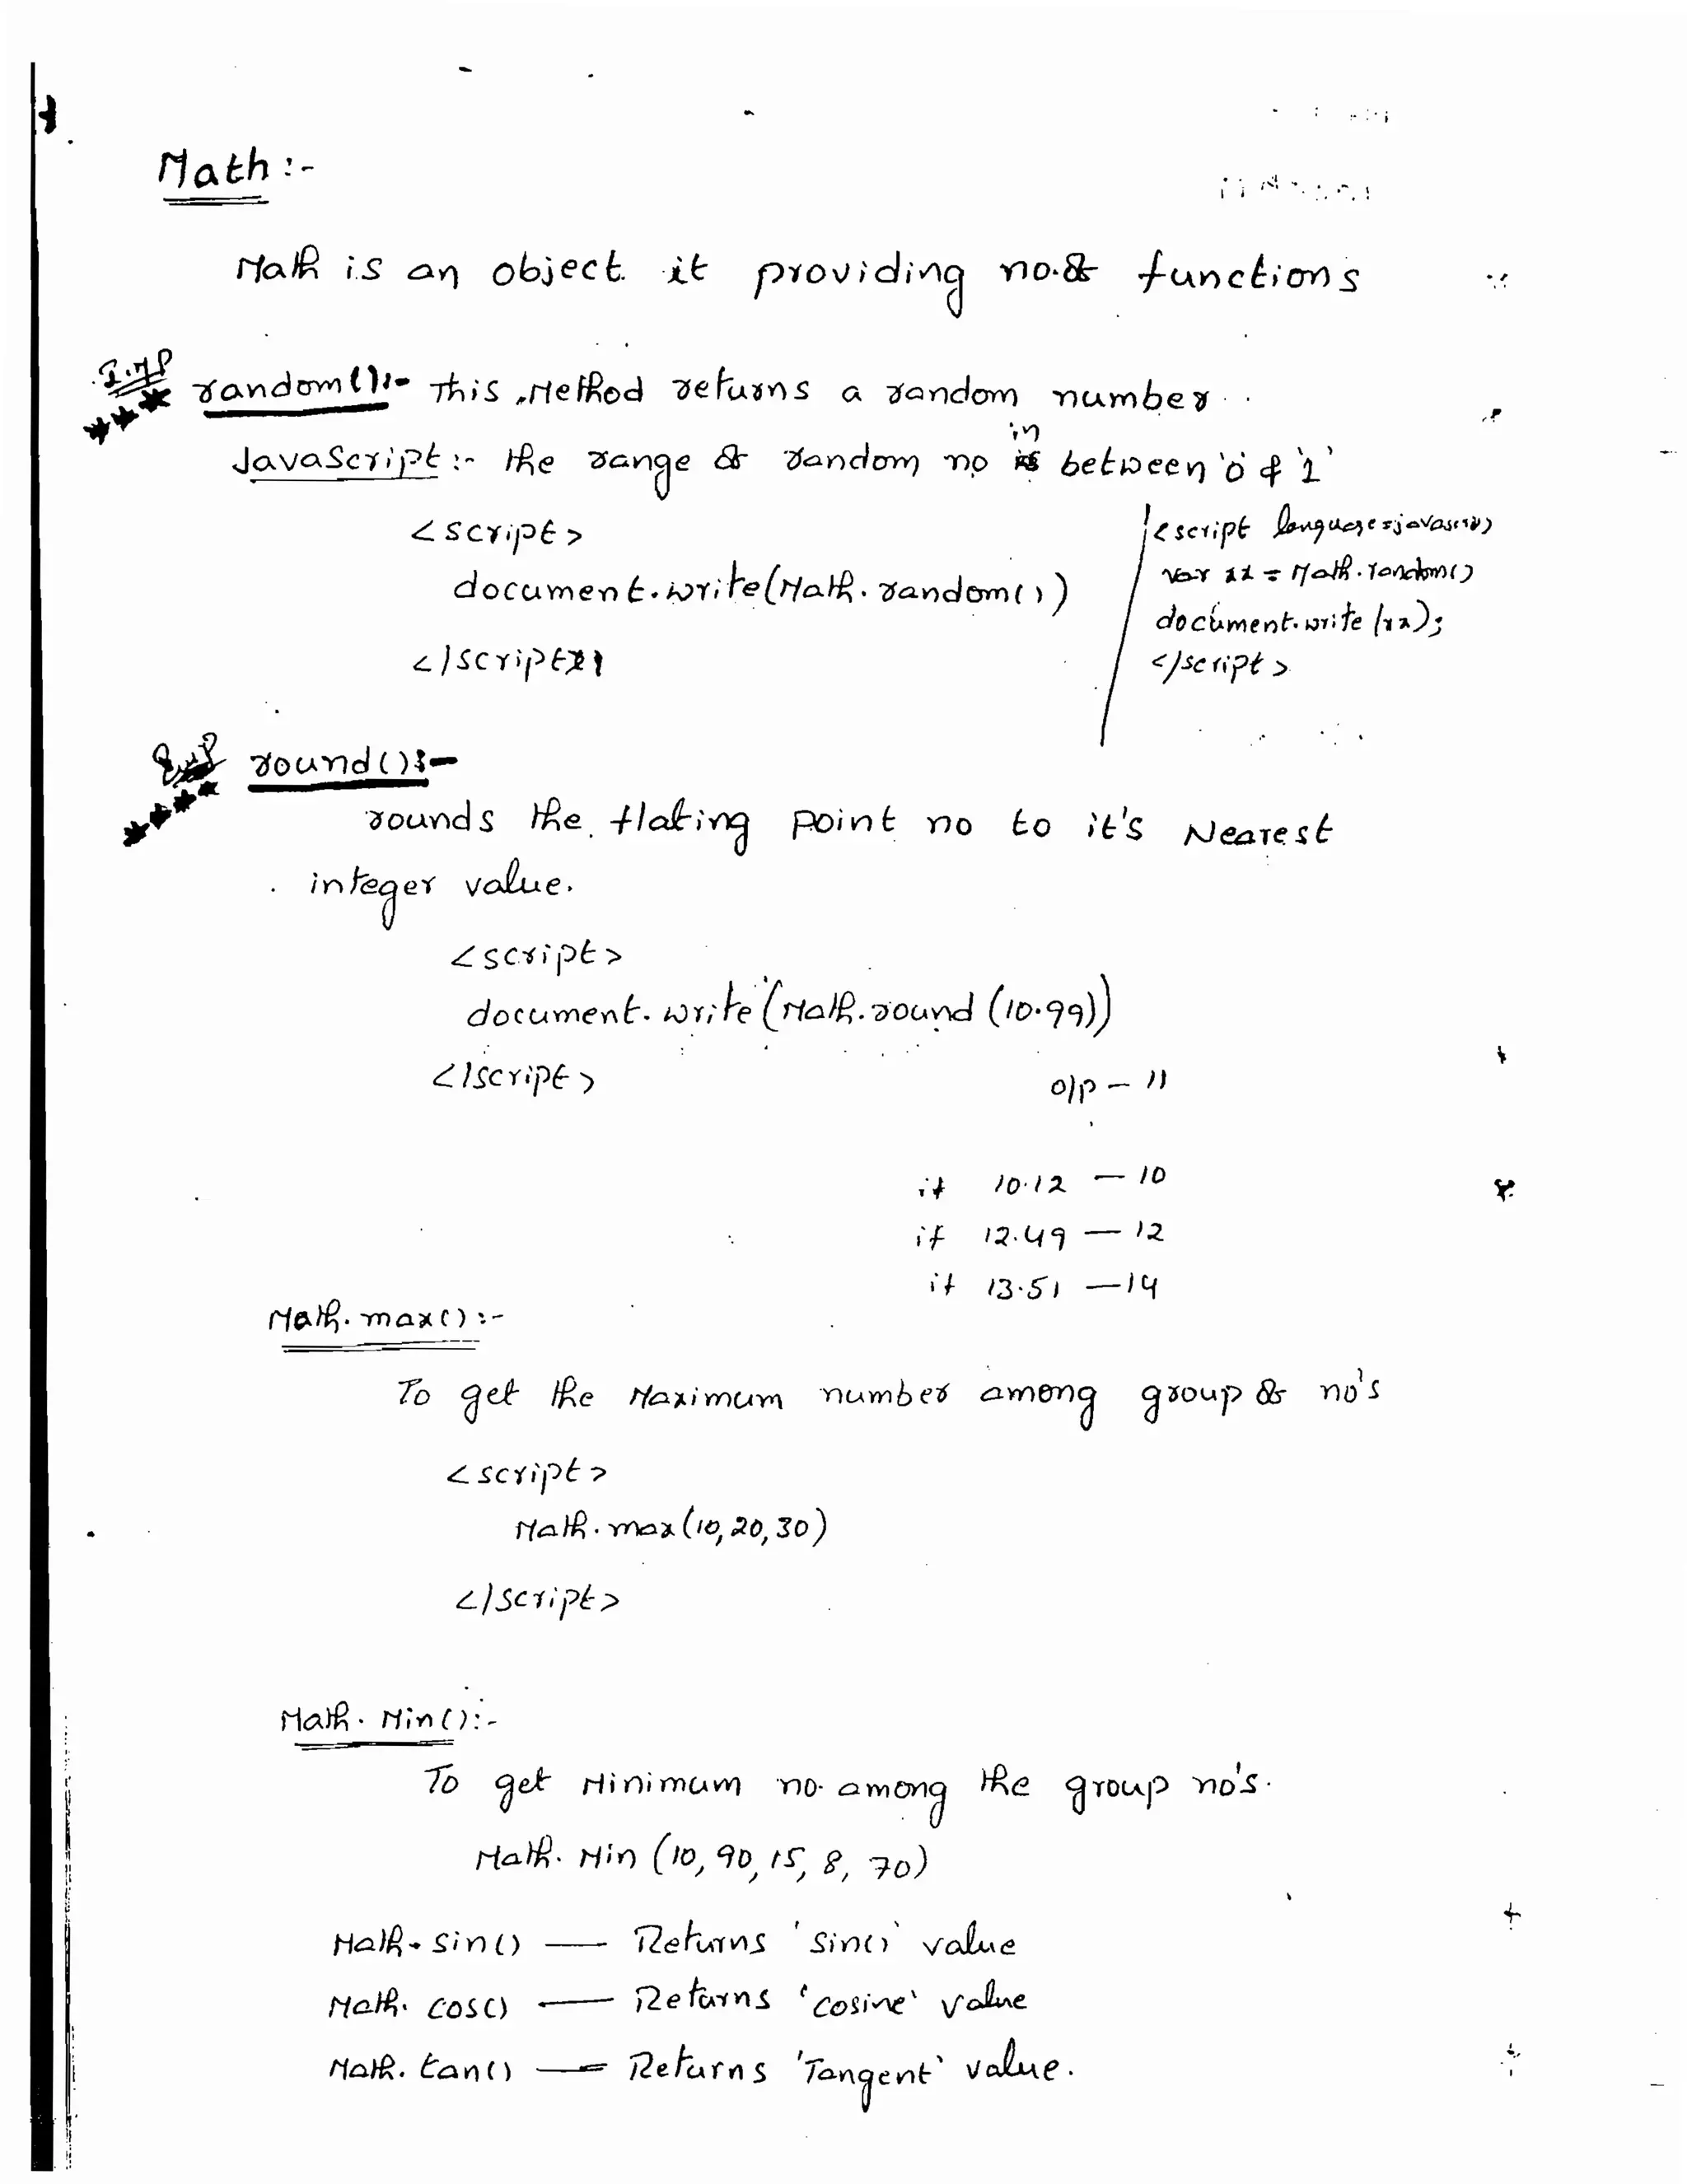 Math :-
Math is an object. it providing no.of functions
Imp random() :- This Method returns a random number
JavaScript :- the range of random no in between '0' & '1'
<script>
document.write(Math.random())
</script>
<script language=javascript>
var xx = Math.random()
document.write(xx);
</script>
Imp round() :-
rounds the flating point no to it's Nearest
integer value.
<script>
document.write(Math.round(10.99))
</script>
o/p - 11
if 10.12 — 10
if 12.49 — 12
if 13.51 — 14
Math.max() :-
To get the Maximum number among group of no's
<script>
Math.max(10,20,30)
</script>
Math.Min() :-
To get Minimum no. among the group no's.
Math.Min (10, 90, 15, 8, 70)
Math.sin() — Returns 'sin()' value
Math.cos() — Returns 'cosine' value
Math.tan() — Returns 'Tangent' value.